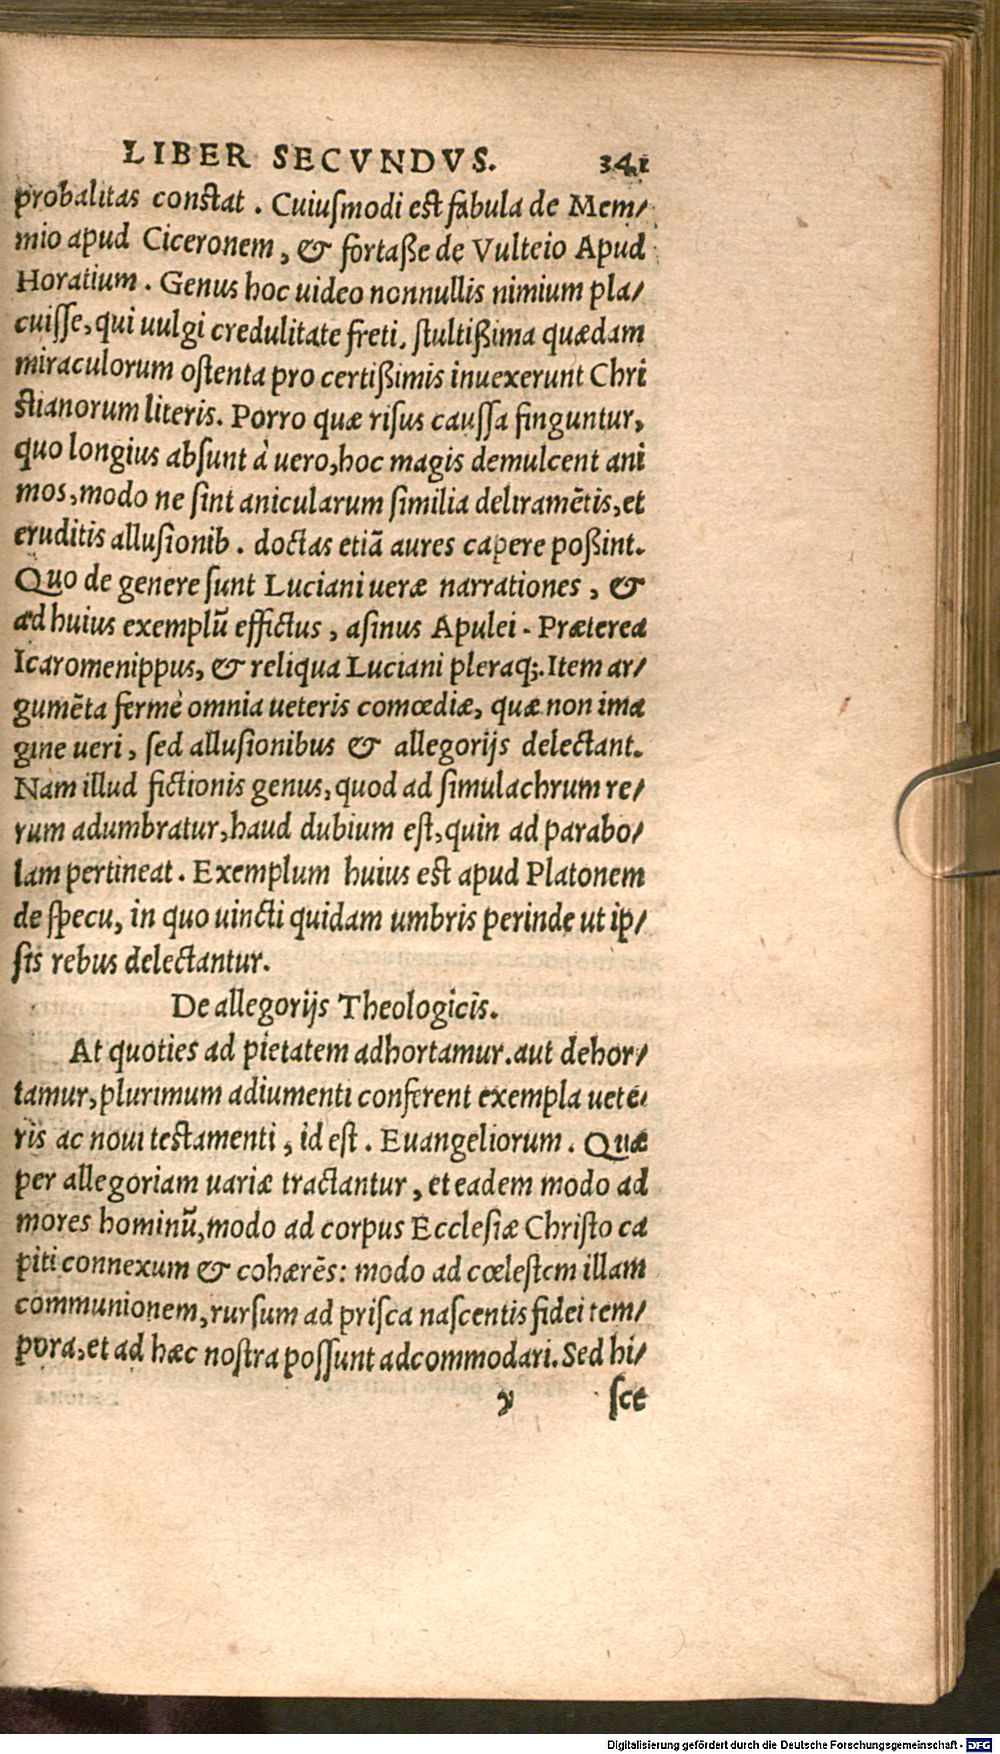 LIBER SECVNDVS. 341
probalitas constat . Cuiuſmodi est fabula de Mem/
mio apud Ciceronem , & fortaße de Vulteio Apud
Horatium . Genus hoc uideo nonnullis nimium pla/
cuiſſe, qui uulgi credulitate freti, ſtultißima quædam
miraculorum oſtenta pro certißimis inuexerunt Chri
stianorum literis. Porro quæ riſus cauſſa finguntur,
quo longius abſunt à uero, hoc magis demulcent ani
mos, modo ne ſint anicularum ſimilia deliramētis, et
eruditis alluſionib . doctas etiā aures capere poßint.
Quo de genere ſunt Luciani ueræ narrationes , &
ad huius exemplū effictus , aſinus Apulei . Præterea
Icaromenippus, & reliqua Luciani pleraq;. Item ar/
gumēta fermè omnia ueteris comœdiæ, quæ non ima
gine ueri , ſed alluſionibus & allegorijs delectant.
Nam illud fictionis genus, quod ad ſimulachrum re/
rum adumbratur, haud dubium eſt, quin ad parabo/
lam pertineat . Exemplum huius est apud Platonem
de ſpecu, in quo uincti quidam umbris perinde ut ip/
ſis rebus delectantur.
De allegorijs Theologicis.
At quoties ad pietatem adhortamur. aut dehor/
tamur, plurimum adiumenti conferent exempla uete/
ris ac noui testamenti , id eſt . Euangeliorum . Quæ
per allegoriam uariæ tractantur , et eadem modo ad
mores hominū, modo ad corpus Eccleſiæ Chriſto ca
piti connexum & cohærēs: modo ad cœleſtem illam
communionem, rurſum ad priſca naſcentis fidei tem/
pora, et ad hæc noſtra poſſunt adcommodari. Sed hi/
y ſce
Digitalisierung gefördert durch die Deutsche Forschungsgemeinschaft - DFG